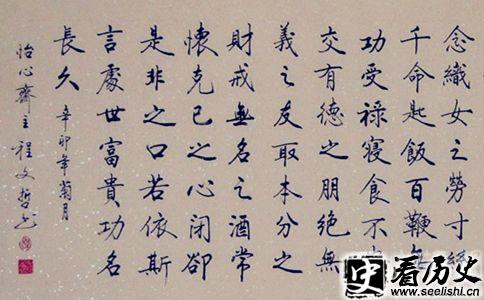 念織女之勞寸絲
千命匙飯百鞭無
功受祿寢食不
交有德之朋絕無
義之友取本分之
財戒無名之酒常
懷克己之心閉卻
是非之口若依斯
言處世富貴功名
長久 辛卯年菊月
怡心齋主程文哲书
史 看历史
www.seelishi.cn